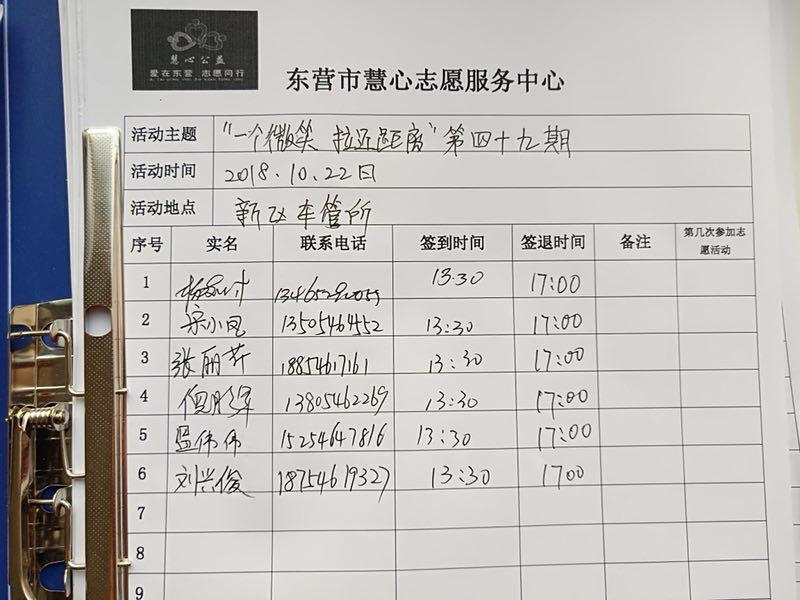 慧心公益
爱在东营 志愿同行
东营市慧心志愿服务中心
活动主题 "一个微笑 拉近距离"第四十九期
活动时间 2018.10.22日
活动地点 新区车管所
序号 实名 联系电话 签到时间 签退时间 备注 第几次参加志愿活动
1 13:30 17:00
2 宋小凤 13505464552 13:30 17:00
3 张丽芹 18854617161 13:30 17:00
4 13805462269 13:30 17:00
5 蓝伟伟 15254647816 13:30 17:00
6 刘兴俊 18754619327 13:30 1700
7
8
9